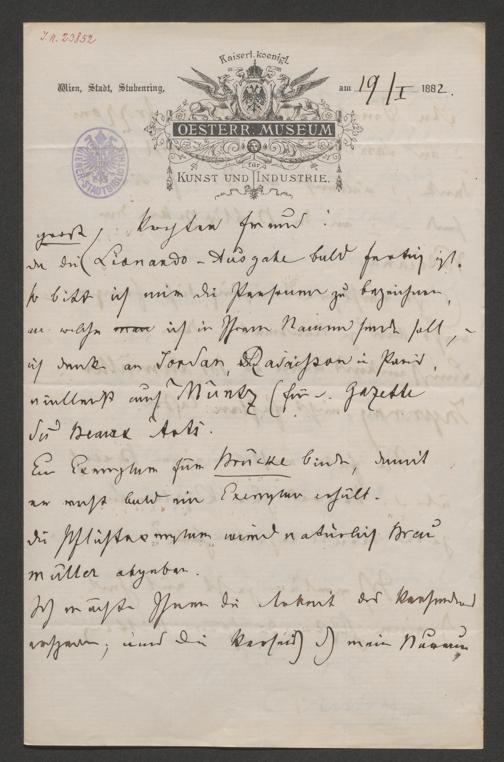 I.N. 23852
Kaiserl. koenigl.
Wien, Stadt, Stubenring, am 19/I 1882.
OESTERR. MUSEUM
für
KUNST UND INDUSTRIE.
WIENER STADTBIBLIOTHEK
Freund!
da die Lionardo-Ausgabe bald fertig ist,
so bitte ich mir die Personen zu bezeichnen,
an welche man ich in Ihrem Namen senden soll,
ich denke an Jordan, Ravaisson in Paris,
vielleicht auch Müntz (für d. Gazette
des Beaux Arts.
Ein Exemplar für Brücke binde, damit
er recht bald ein Exemplar erhält.
die Pflichtexemplare wird natürlich Brau
müller abgeben.
Ich möchte Ihnen die Arbeit des Versendens
ersparen; und die durch mein Bureau